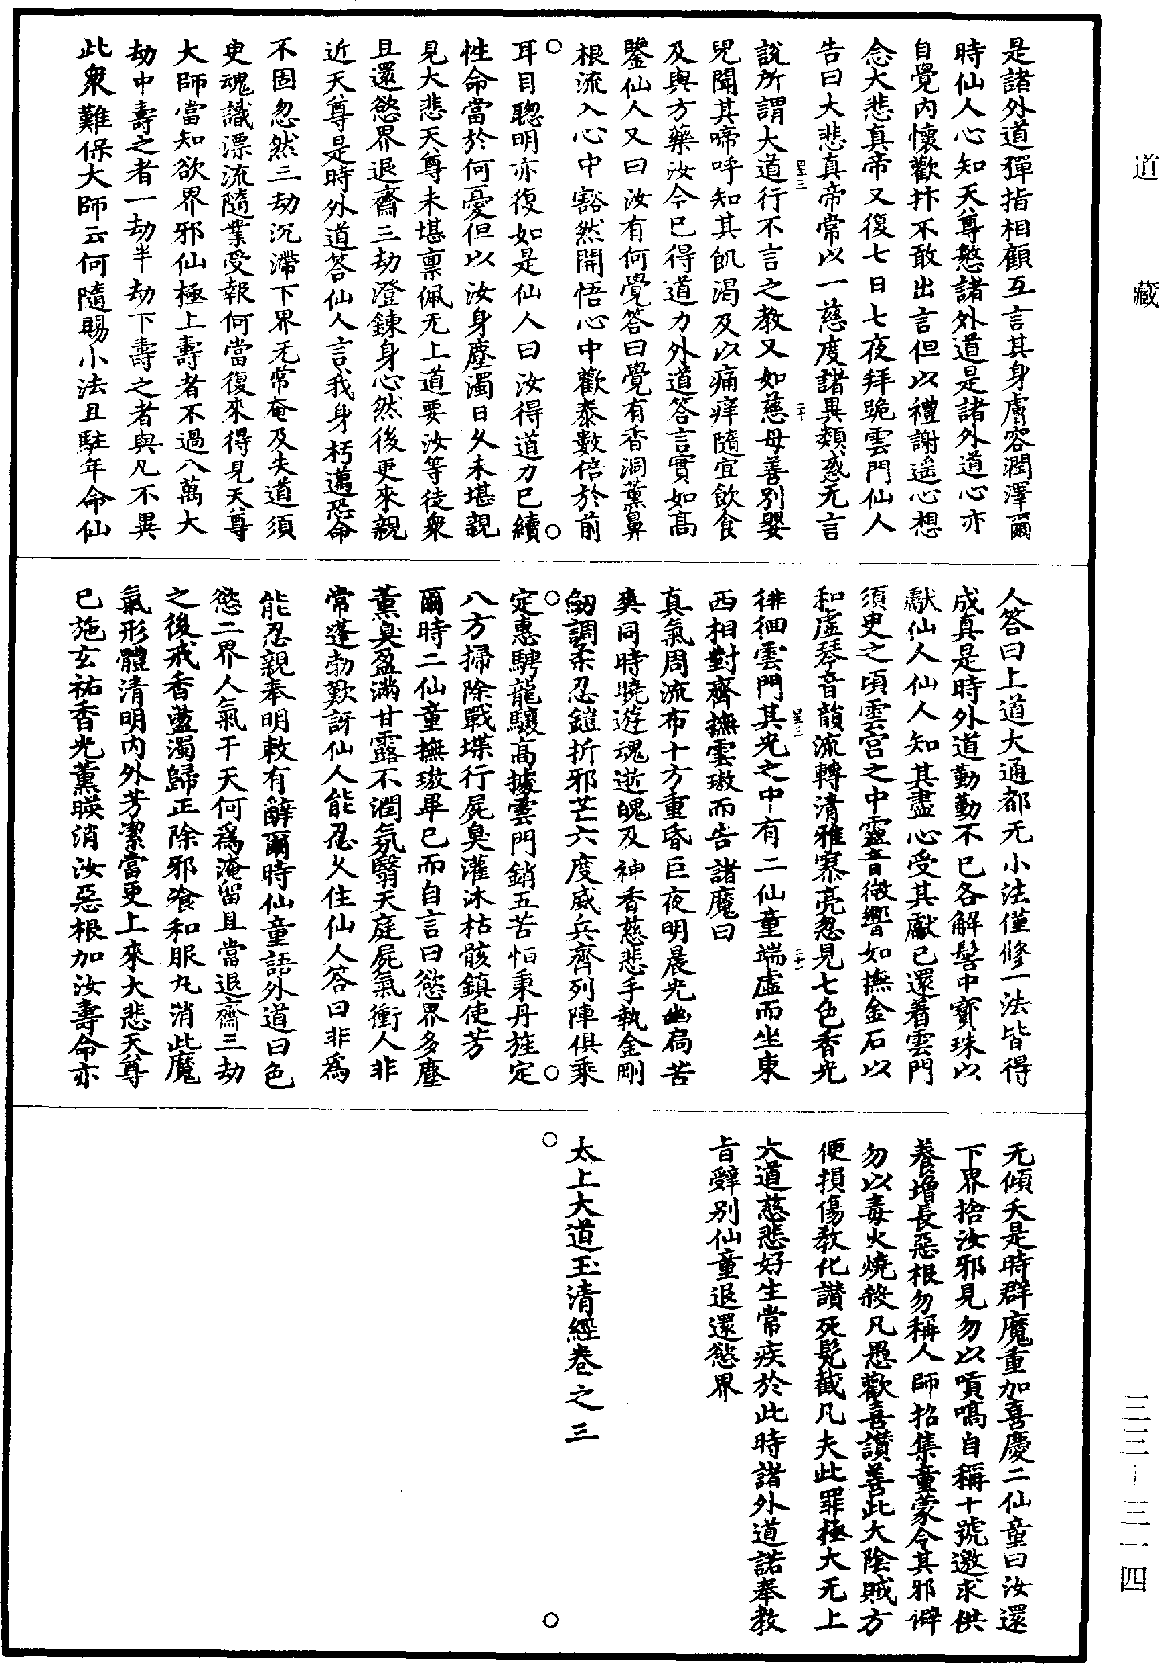 道藏
三三—三一四
是諸外道彈指相顧互言其身膚容潤澤爾
時仙人心知天尊愍諸外道是諸外道心亦
自覺內懷歡抃不敢出言但以禮謝遥心想
念大悲真帝又復七日七夜拜跪雲門仙人
告曰大悲真帝常以一慈度諸異類惑无言
說所謂大道行不言之教又如慈母善別嬰
兒聞其啼呼知其飢渴及以痛痒隨宜飲食
及與方藥汝今已得道力外道答言實如高
鑒仙人又曰汝有何覺答曰覺有香洞薰鼻
根流入心中豁然開悟心中歡泰數倍於前
耳目聦明亦復如是仙人曰汝得道力已續
性命當於何憂但以汝身塵濁日久未堪親
見大悲天尊未堪禀佩无上道要汝等徒衆
且還慾界退齋三劫澄鍊身心然後更來親
近天尊是時外道答仙人言我身朽邁恐命
不固忽然三劫沉滯下界无常奄及失道須
臾魂識漂流隨業受報何當復來得見天尊
大師當知欲界邪仙極上壽者不過八萬大
劫中壽之者一劫半劫下壽之者與凡不異
此衆難保大師云何隨賜小法且駐年命仙
人答曰上道大通都无小法僅修一法皆得
成真是時外道勤勤不已各解髻中寶珠以
獻仙人仙人知其盡心受其獻已還着雲門
須臾之頃雲宫之中靈音徵響如撫金石以
和虛琴音韻流轉清雅寥亮忽見七色香光
徘徊雲門其光之中有二仙童端虛而坐東
西相對齊撫雲璈而告諸魔曰
真氣周流布十方重昏巨夜明晨光幽扃苦
爽同時曉遊魂逝魄及神香慈悲手執金剛
劒調柔忍鎧折邪芒六度威兵齊列陣俱乘
定惠騁龍驤高據雲門銷五苦怕秉丹旌定
八方掃除戰堞行屍臭灌沐枯骸鎮使芳
爾時二仙童撫璈畢已而自言曰慾界多塵
薰臭盈滿甘露不潤氛翳天庭屍氣衝人非
常蓬勃歎訝仙人能忍久住仙人答曰非爲
能忍親奉明敕有辭爾時仙童語外道曰色
慾二界人氣干天何爲淹留且當退齋三劫
之後戒香蓝濁歸正除邪飡和服丸消此魔
氣形體清明內外芳潔當更上來大悲天尊
已施玄祐香光薰暎消汝惡根加汝壽命亦
无傾夭是時群魔重加喜慶二仙童曰汝還
下界捨汝邪見勿以嗔㗖自稱十號邀求供
養增長惡根勿稱人師招集童蒙令其邪僻
勿以毒火燒殺凡愚歡喜讃善此大陰賊方
便損傷教化讃死髡截凡夫此罪極大无上
大道慈悲好生常疾於此時諸外道諾奉教
旨辭別仙童退還慾界
太上大道玉清經卷之三